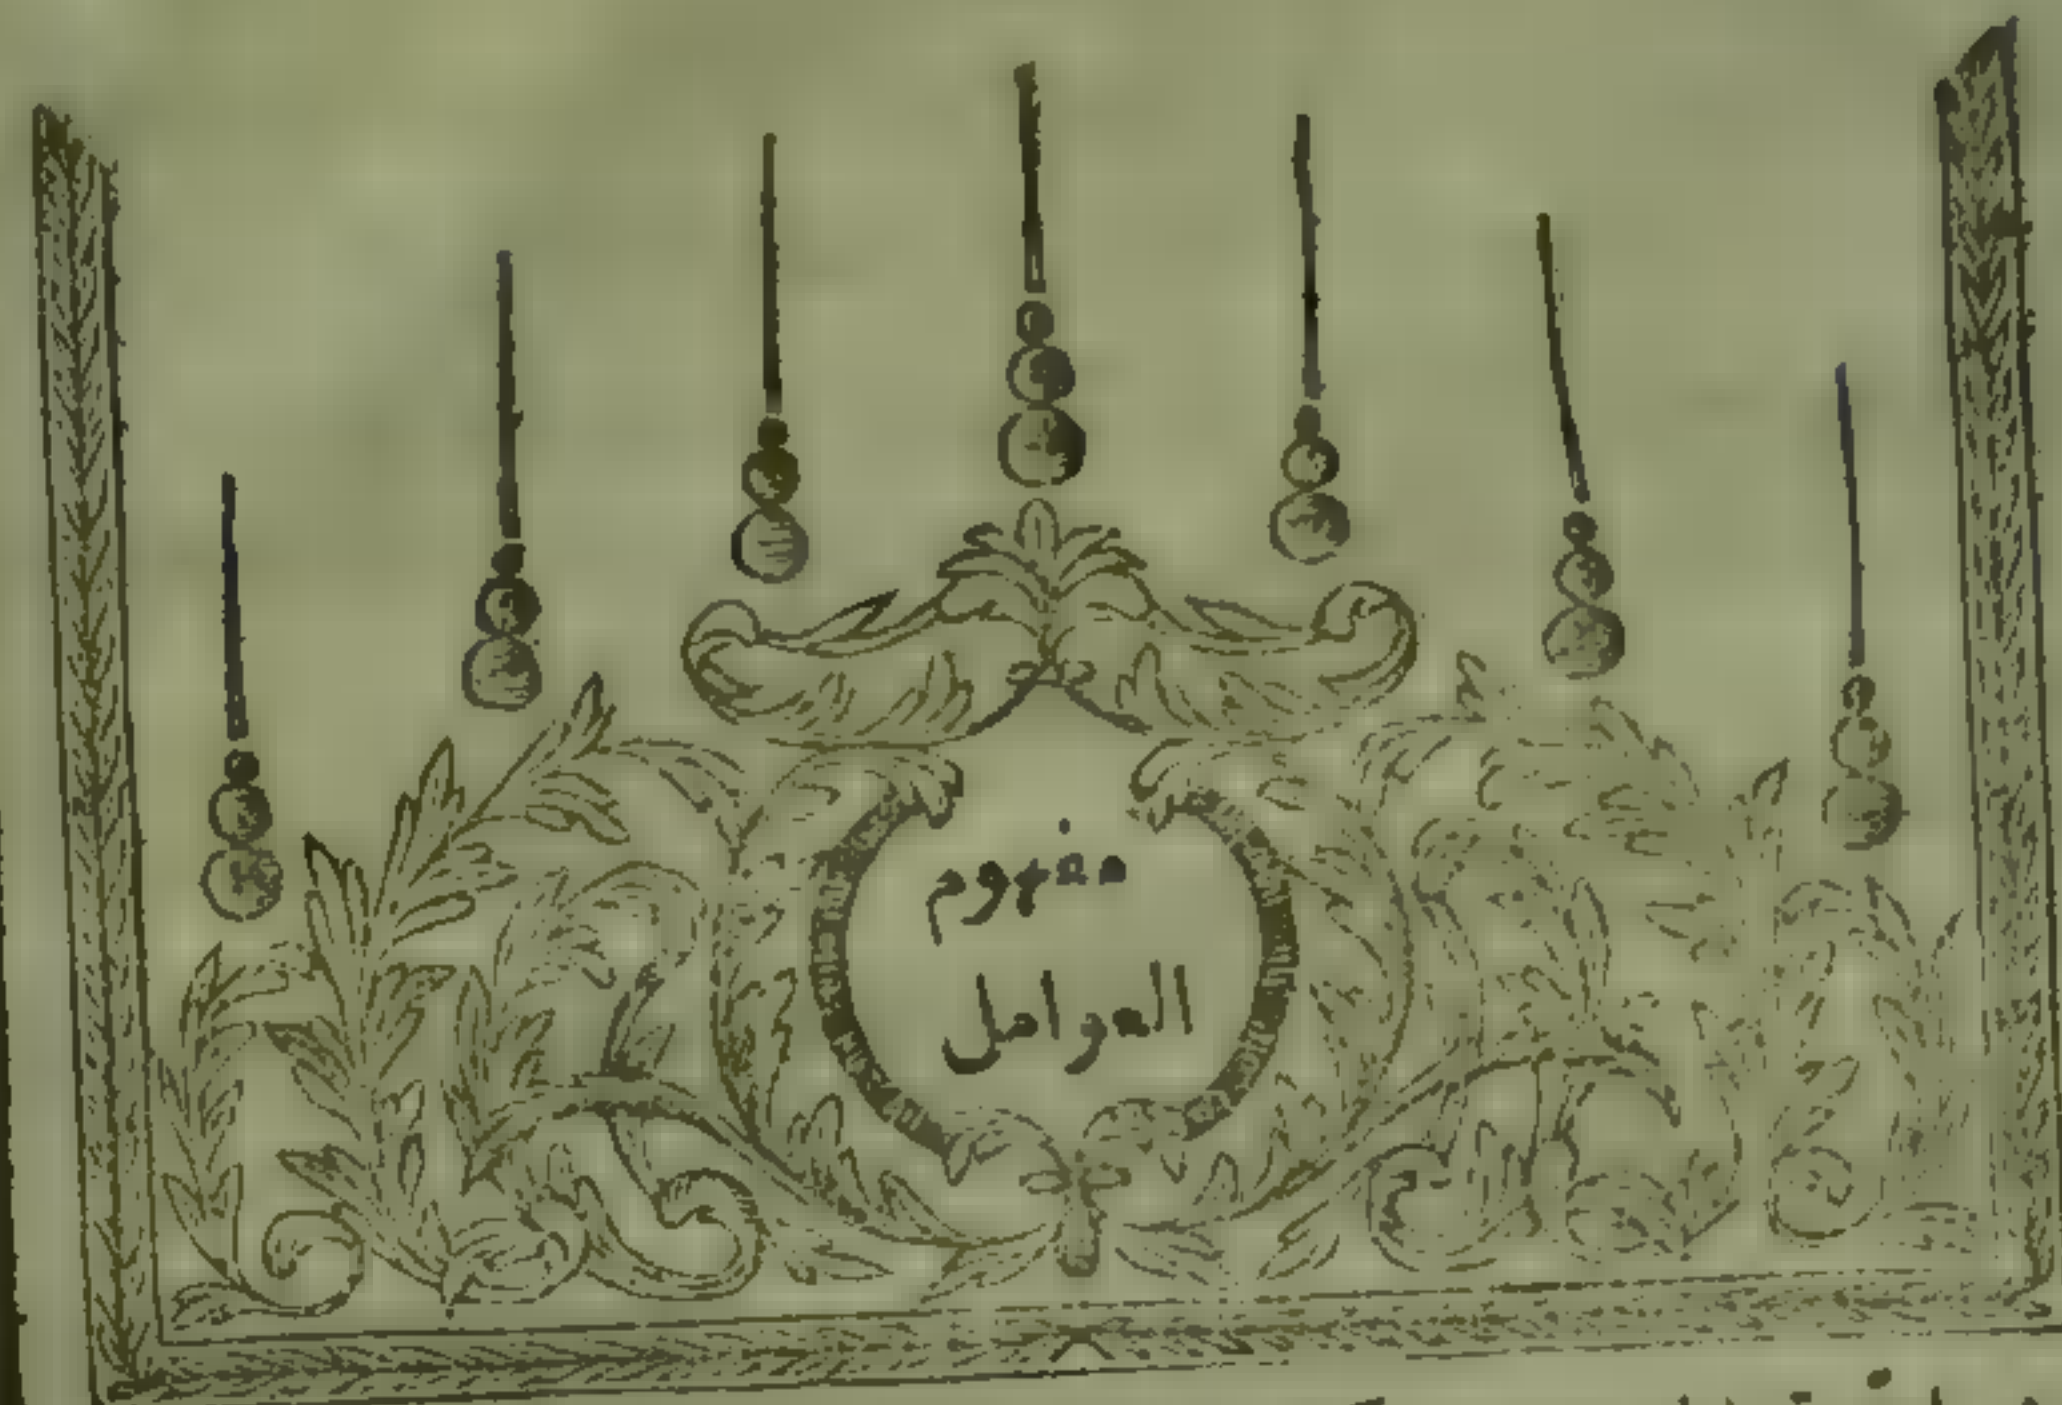 مفهوم
العوامل